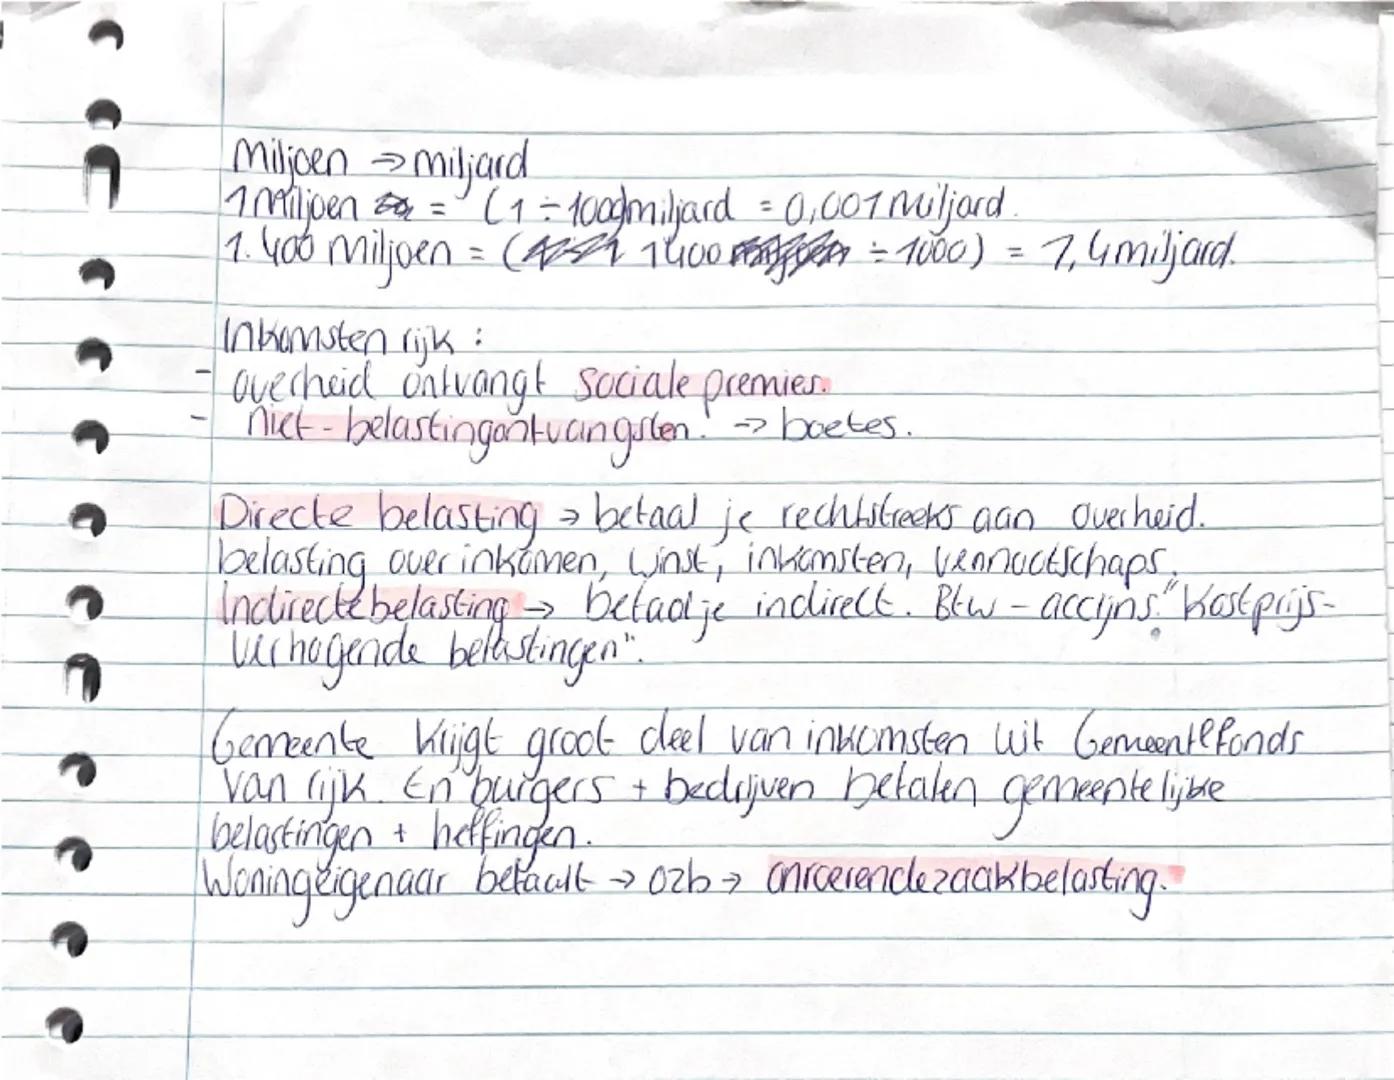 Miljoen → miljard
1 Miljoen = (1 ÷ 1000) miljard = 0,001 miljard.
1.400 miljoen = ( 1400 ÷ 1000) = 1,4 miljard.
Inkomsten rijk :
- overheid ontvangt sociale premies.
- niet-belastingontvangsten. → boetes.
Directe belasting → betaal je rechtstreeks aan overheid.
belasting over inkomen, winst, inkomsten, vennootschaps.
Indirecte belasting → betaal je indirect. Btw - accijns. "Kostprijs-
verhogende belastingen".
Gemeente krijgt groot deel van inkomsten uit Gemeentefonds
van rijk. En burgers + bedrijven betalen gemeentelijke
belastingen + heffingen.
Woningeigenaar betaalt → ozb → onroerendezaakbelasting.